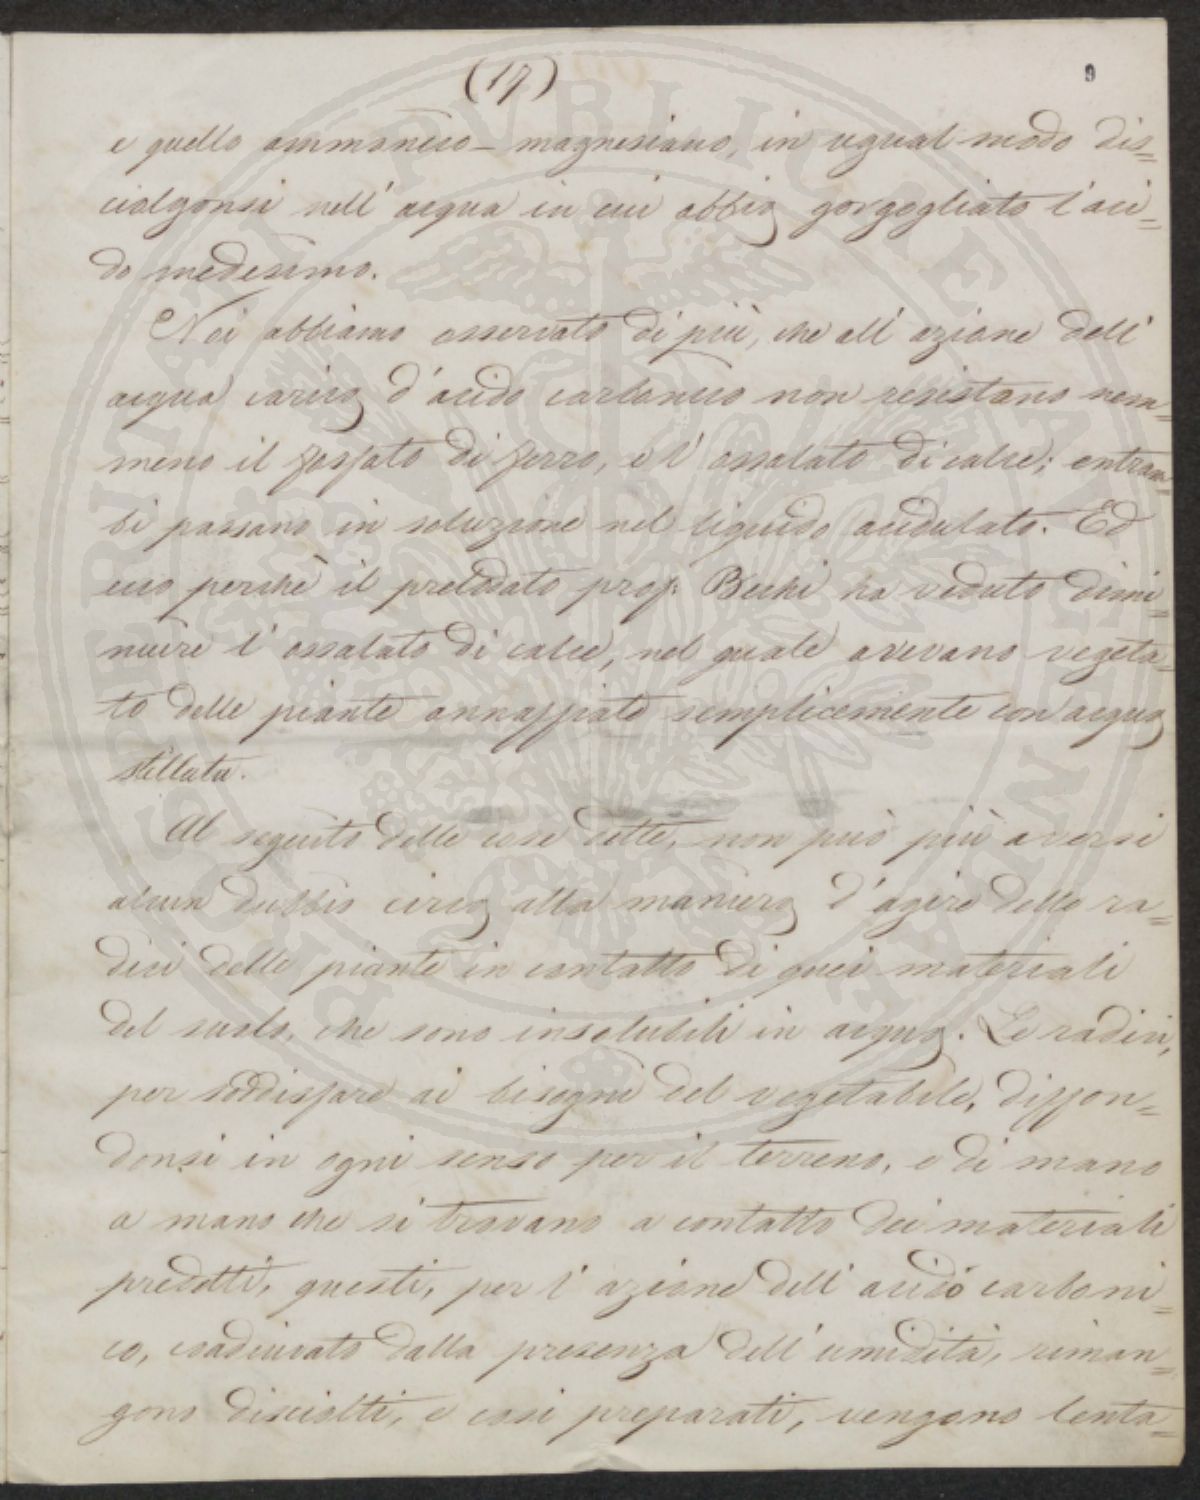 (17)
9
e quello ammonico-magnesiaco, in ugual modo dis=
ciolgonsi nell' acqua in cui abbia gorgogliato l'aci=
do medesimo.
Noi abbiamo osservato di più, che all' azione dell'
acqua carica d'acido carbonico non resistano nem=
meno il fosfato di ferro, e l' ossalato di calce; entram=
bi passano in soluzione nel liquido acidulato. Ed
ecco perchè il prelodato prof. Bechi ha veduto dimi=
nuire l' ossalato di calce, nel quale avevano vegeta=
to delle piante annaffiate semplicemente con acqua
stillata.
Al seguito delle cose dette, non può più aversi
alcun dubbio circa alla maniera d'agire delle ra=
dici delle piante in contatto di quei materiali
del suolo, che sono insolubili in acqua. Le radici,
per soddisfare ai bisogni del vegetabile, diffon=
donsi in ogni senso per il terreno, e di mano
a mano che si trovano a contatto dei materiali
predetti, questi, per l' azione dell' acido carboni=
co, coadiuvato dalla presenza dell' umidità, riman=
gono disciolti, e così preparati, vengono lenta=